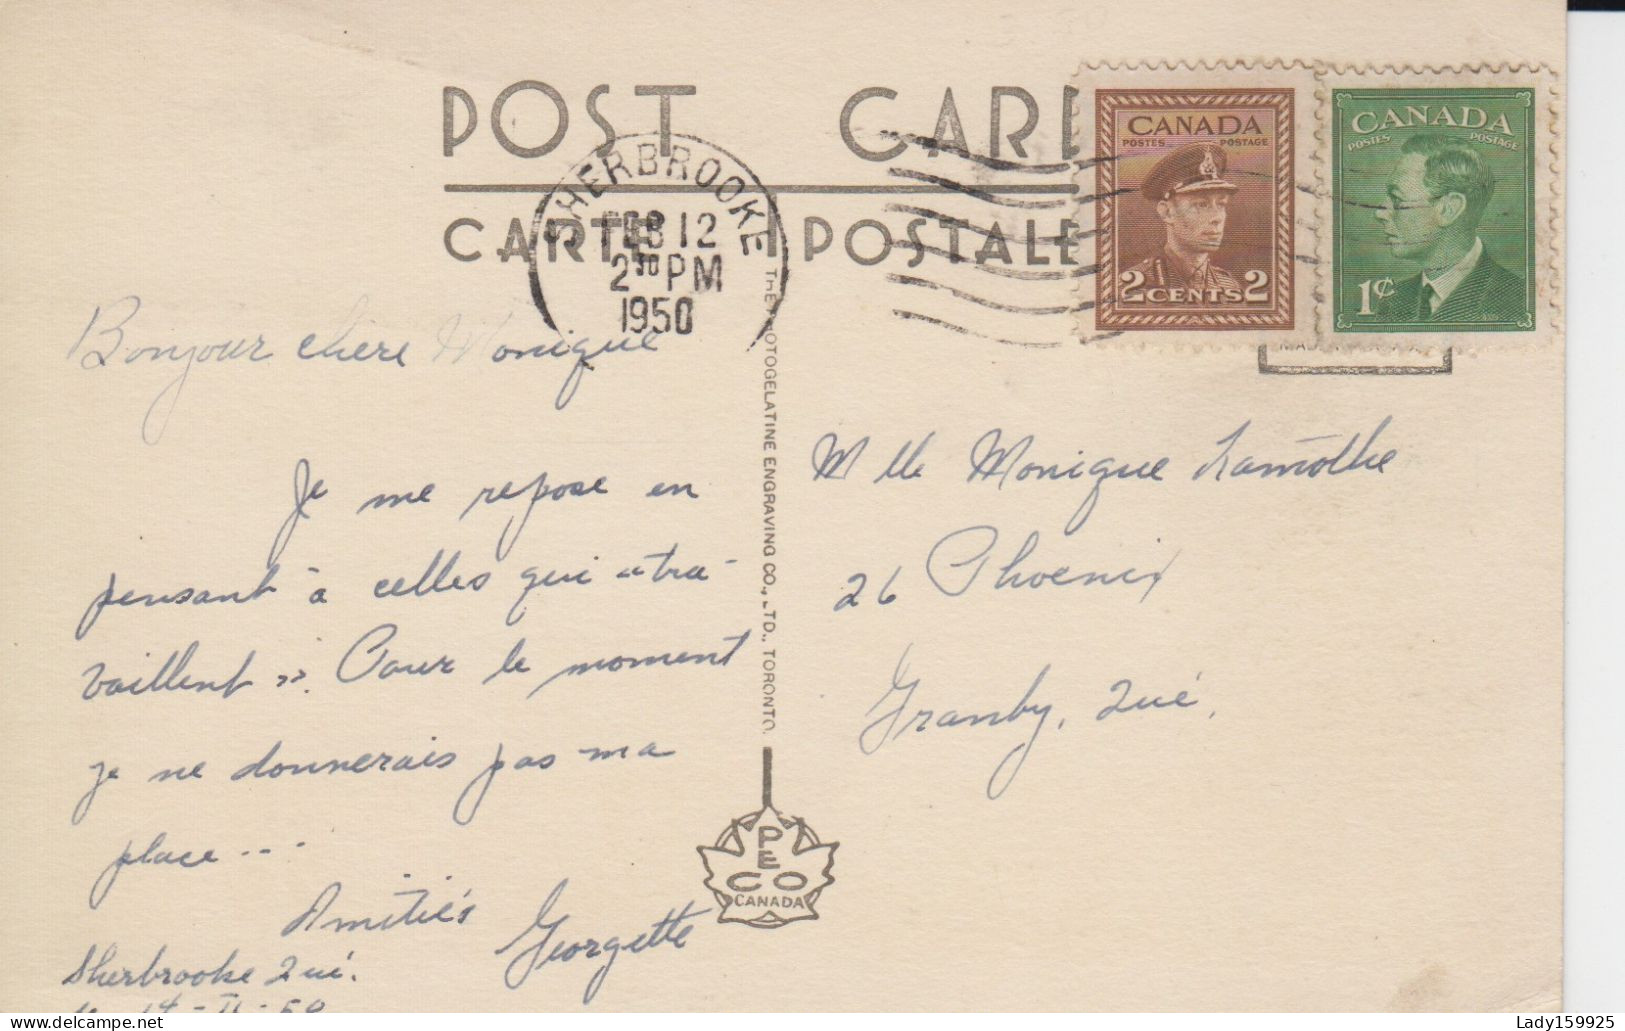 POST CAR
CARTE POSTALE
SHERBROOKE
FEB 12
2 30 PM
1950
CANADA
POSTES POSTAGE
2 CENTS 2
CANADA
POSTES POSTAGE
1¢
THE PHOTOGELATINE ENGRAVING CO., LTD., TORONTO.
PECO
CANADA
Bonjour chère Monique
Je me repose en
pensant à celles qui «tra-
vaillent». Pour le moment
je ne donnerais pas ma
place...
Amitiés
Georgette
Sherbrooke Qué.
14-II-50
Mlle Monique Lamothe
26 Phoenix
Granby, Qué.
Lady159925